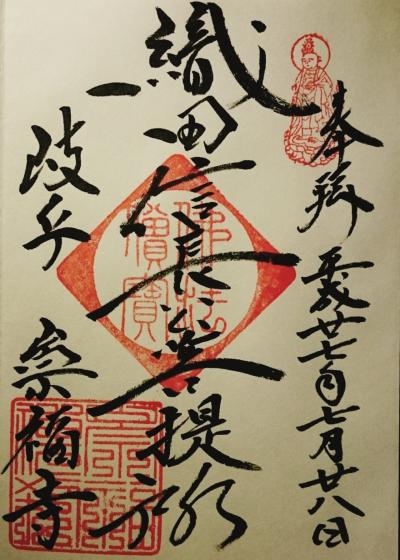 奉拝 平成廿七年七月廿八日
織田信長公菩提所
岐阜 崇福寺
佛法僧寳